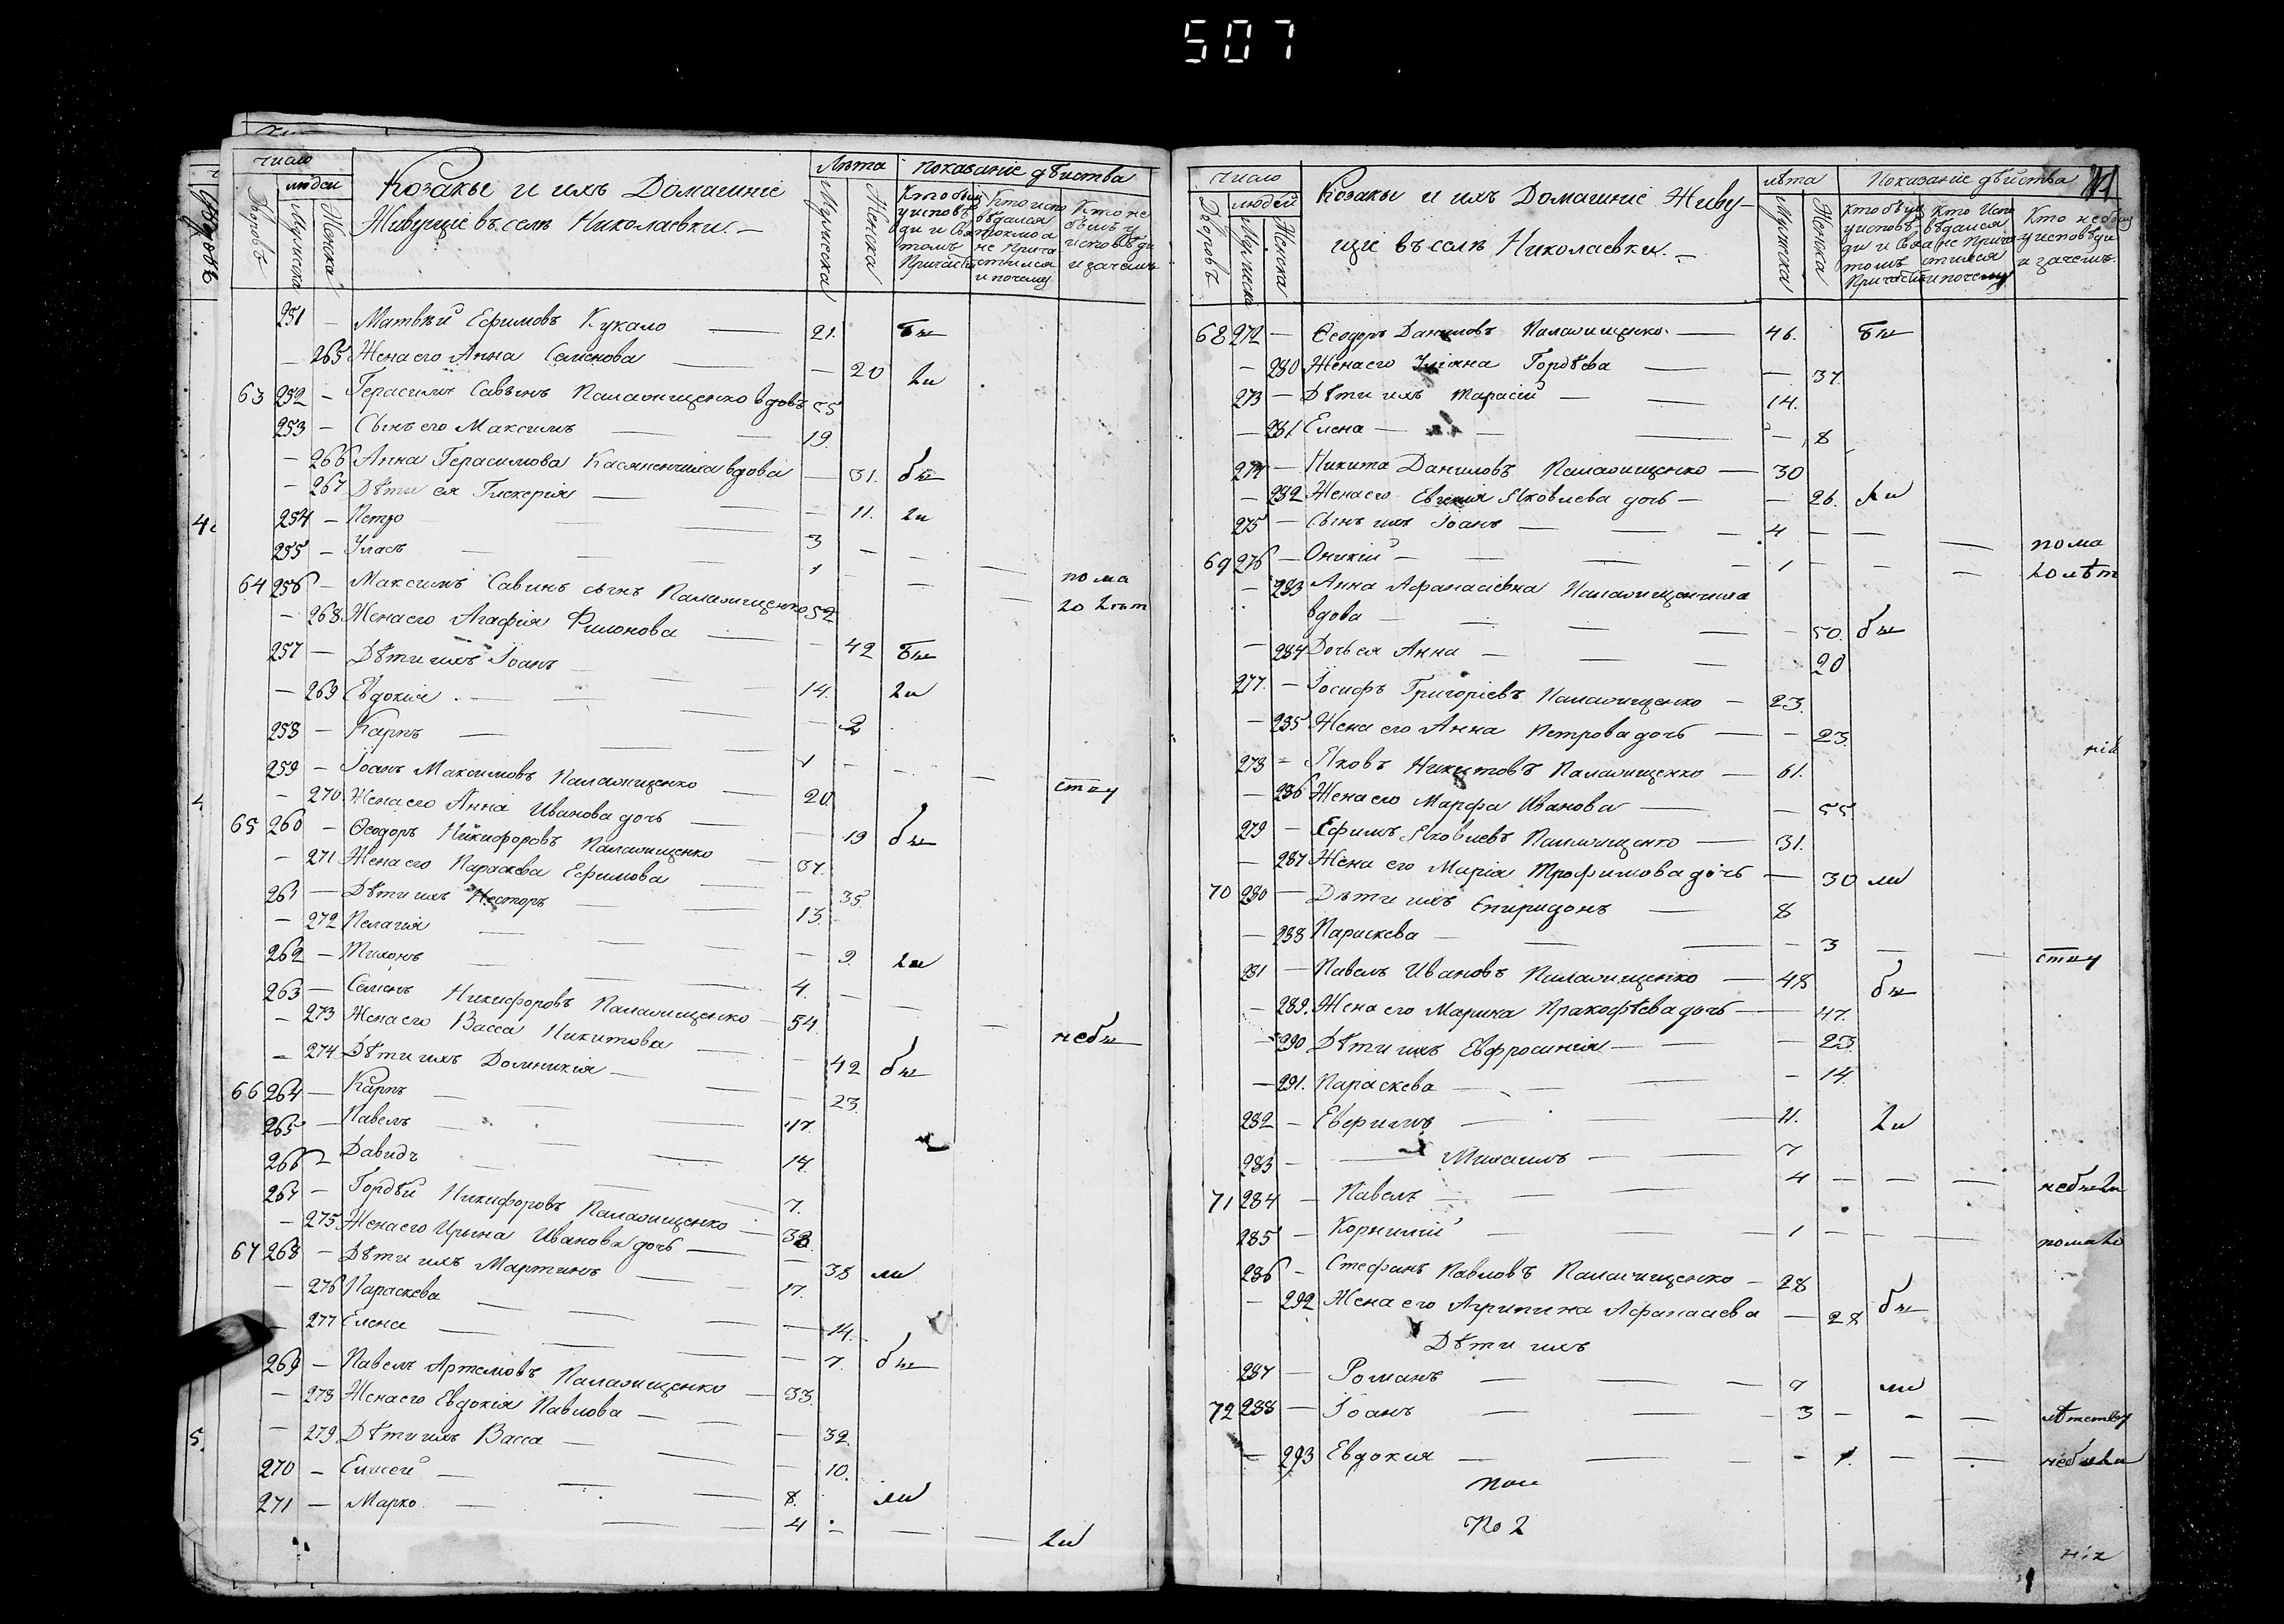 507
число
людей
Дворовъ
Мужеска
Женска
Козаки и ихъ Домашніе
Живущіе въ селѣ Николаевки. —
Лѣта
Мужеска
Женска
показаніе дѣиства
251 — Матвѣй Ефимовъ Кукало — 21. бы
— 265 Жена его Анна Семенова — 20 ли
63 252 — Герасимъ Савынъ Паламищенко вдовъ 55
253 — Сынъ его Максимъ — 19.
— 266 Анна Герасимова Касяненкина вдова — 31. бы
— 267 Дѣти ея Гликерія — 11. ли
254 — Петро — 3 — — — пома
255 — Уласъ — 1 — — — ло лѣт
64 256 — Максимъ Савинъ сынъ Паламищенко 52
— 268 Жена его Агафія Филонова — 42 бы
257 — Дѣти ихъ Іоанъ — 14. ли
— 269 Евдокія — 2
258 — Карпъ — 1 — — — ству
259 — Іоанъ Максимовъ Паламищенко — 20
— 270. Жена его Анна Иванова дочь — 19 бы
65 260 — Ѳеодоръ Никифоровъ Паламищенко — 37.
— 271 Жена его Параскева Ефимова — 35.
261 — Дѣти ихъ Несторъ — 13.
— 272 Пелагія — 9. ли
262 — Тихонъ — 4. — — — небы
263 — Семенъ Никифоровъ Паламищенко — 54.
— 273 Жена его Васса Никитова — 42 бы
— 274 Дѣти ихъ Домникія — 23.
66 264 — Карпъ — 17.
265 — Павелъ — 14.
266 — Давидъ — 7.
267 — Гордѣй Никифоровъ Паламищенко — 38.
— 275 Жена его Ирына Иванова дочь — 38 ли
67 268 — Дѣти ихъ Мартинъ — 17.
— 276 Параскева — 14.
— 277 Елена — 7. бы
269 — Павелъ Артемовъ Паламищенко — 33.
— 278 Жена его Евдокія Павлова — 32.
— 279 Дѣти ихъ Васса — 10.
270 — Елисей — 8. ли
271 — Марко — 4 — — — ли
число
людей
Дворовъ
Мужеска
Женска
Козаки и ихъ Домашніе Живу-
щіе въ селѣ Николаевки. —
лѣта
Мужеска
Женска
Показаніе дѣйства
68 272 — Ѳеодоръ Даниловъ Паламищенко — 46. бы
— 280 Жена его Уліяна Гордѣева — 37.
273 — Дѣти ихъ Тарасій — 14.
— 281 Елена — 8
274 — Никита Даниловъ Паламищенко — 30
— 282 Жена его Евгенія Яковлева дочь — 26. ли
275 — Сынъ ихъ Іоанъ — 4 — — — пома
69 276 — Оникій — 1 — — — ло лѣт
— 283 Анна Афанасіевна Паламищенкина
вдова — 50. бы
— 284 Дочь ея Анна — 20
277. — Іосифъ Григоріевъ Паламищенко — 23.
— 285 Жена его Анна Петрова дочь — 23.
278 — Яковъ Никитовъ Паламищенко — 61.
— 286 Жена его Марфа Иванова — 55
279 — Ефимъ Яковлевъ Паламищенко — 31.
— 287 Жена его Марія Трофимова дочь — 30 ли
70 280 — Дѣти ихъ Спиридонъ — 8
— 288 Параскева — 3 — — ству
281 — Павелъ Ивановъ Паламищенко — 48 бы
— 289. Жена его Марина Пракофѣева дочь — 47.
— 290 Дѣти ихъ Евфросинія — 23.
— 291. Параскева — 14.
282 — Еверимъ — 11. ли
283 — Михаилъ — 7
71 284 — Павелъ — 4 — — — небыли
285 — Корнилій — 1 — — — помало
286 — Стефанъ Павловъ Паламищенко — 28
— 292 Жена его Агрипина Афанасіева — 28 бы
Дѣти ихъ
287 — Романъ — 7 ли
72 288 — Іоанъ — 3 — — — лѣтству
— 293 Евдокия — 1. — — небыли